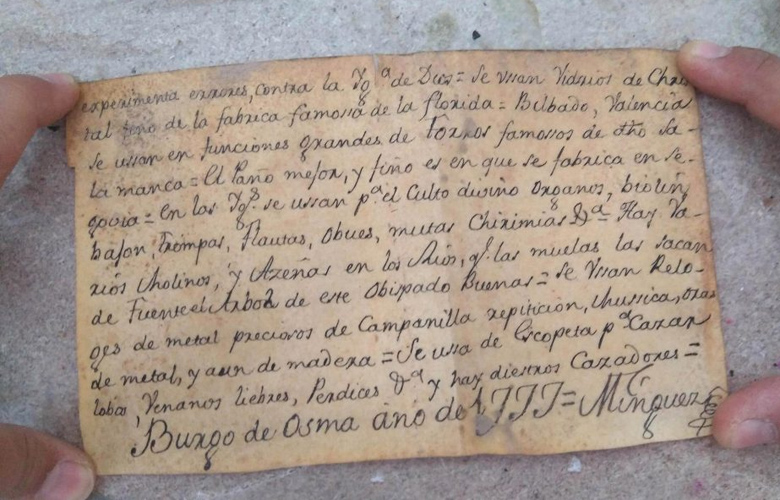 experimenta errores, contra la Yg.ª de Dios = Se Ussan Vidrios de Chris
tal fino de la fabrica famossa de la florida = Bilbado, Valencia
se ussan en funciones grandes de torros famosos de dho Sa-
la manca = El Paño mejor, y fino es en que se fabrica en Se-
govia = En las Yg.s se ussan p.ª el Culto divino Organos, biolin
bajon, trompas, flautas, Obues, mutas Chirimias &.ª = Hay Va-
rios Molinos, y Azeñas en los Rios, q.e las muelas las sacan
de Fuentelarbol de este Obispado Buenas = Se Ussan Relo-
ges de metal preciosos de Campanilla repiticion, Mussica, oras
de metal, y aun de madera = Se ussa de Escopeta p.ª Cazar
lobos, Venanos liebres, Perdices &.ª y hay diestros Cazadores =
Burgo de Osma año de 1777 = Minguez